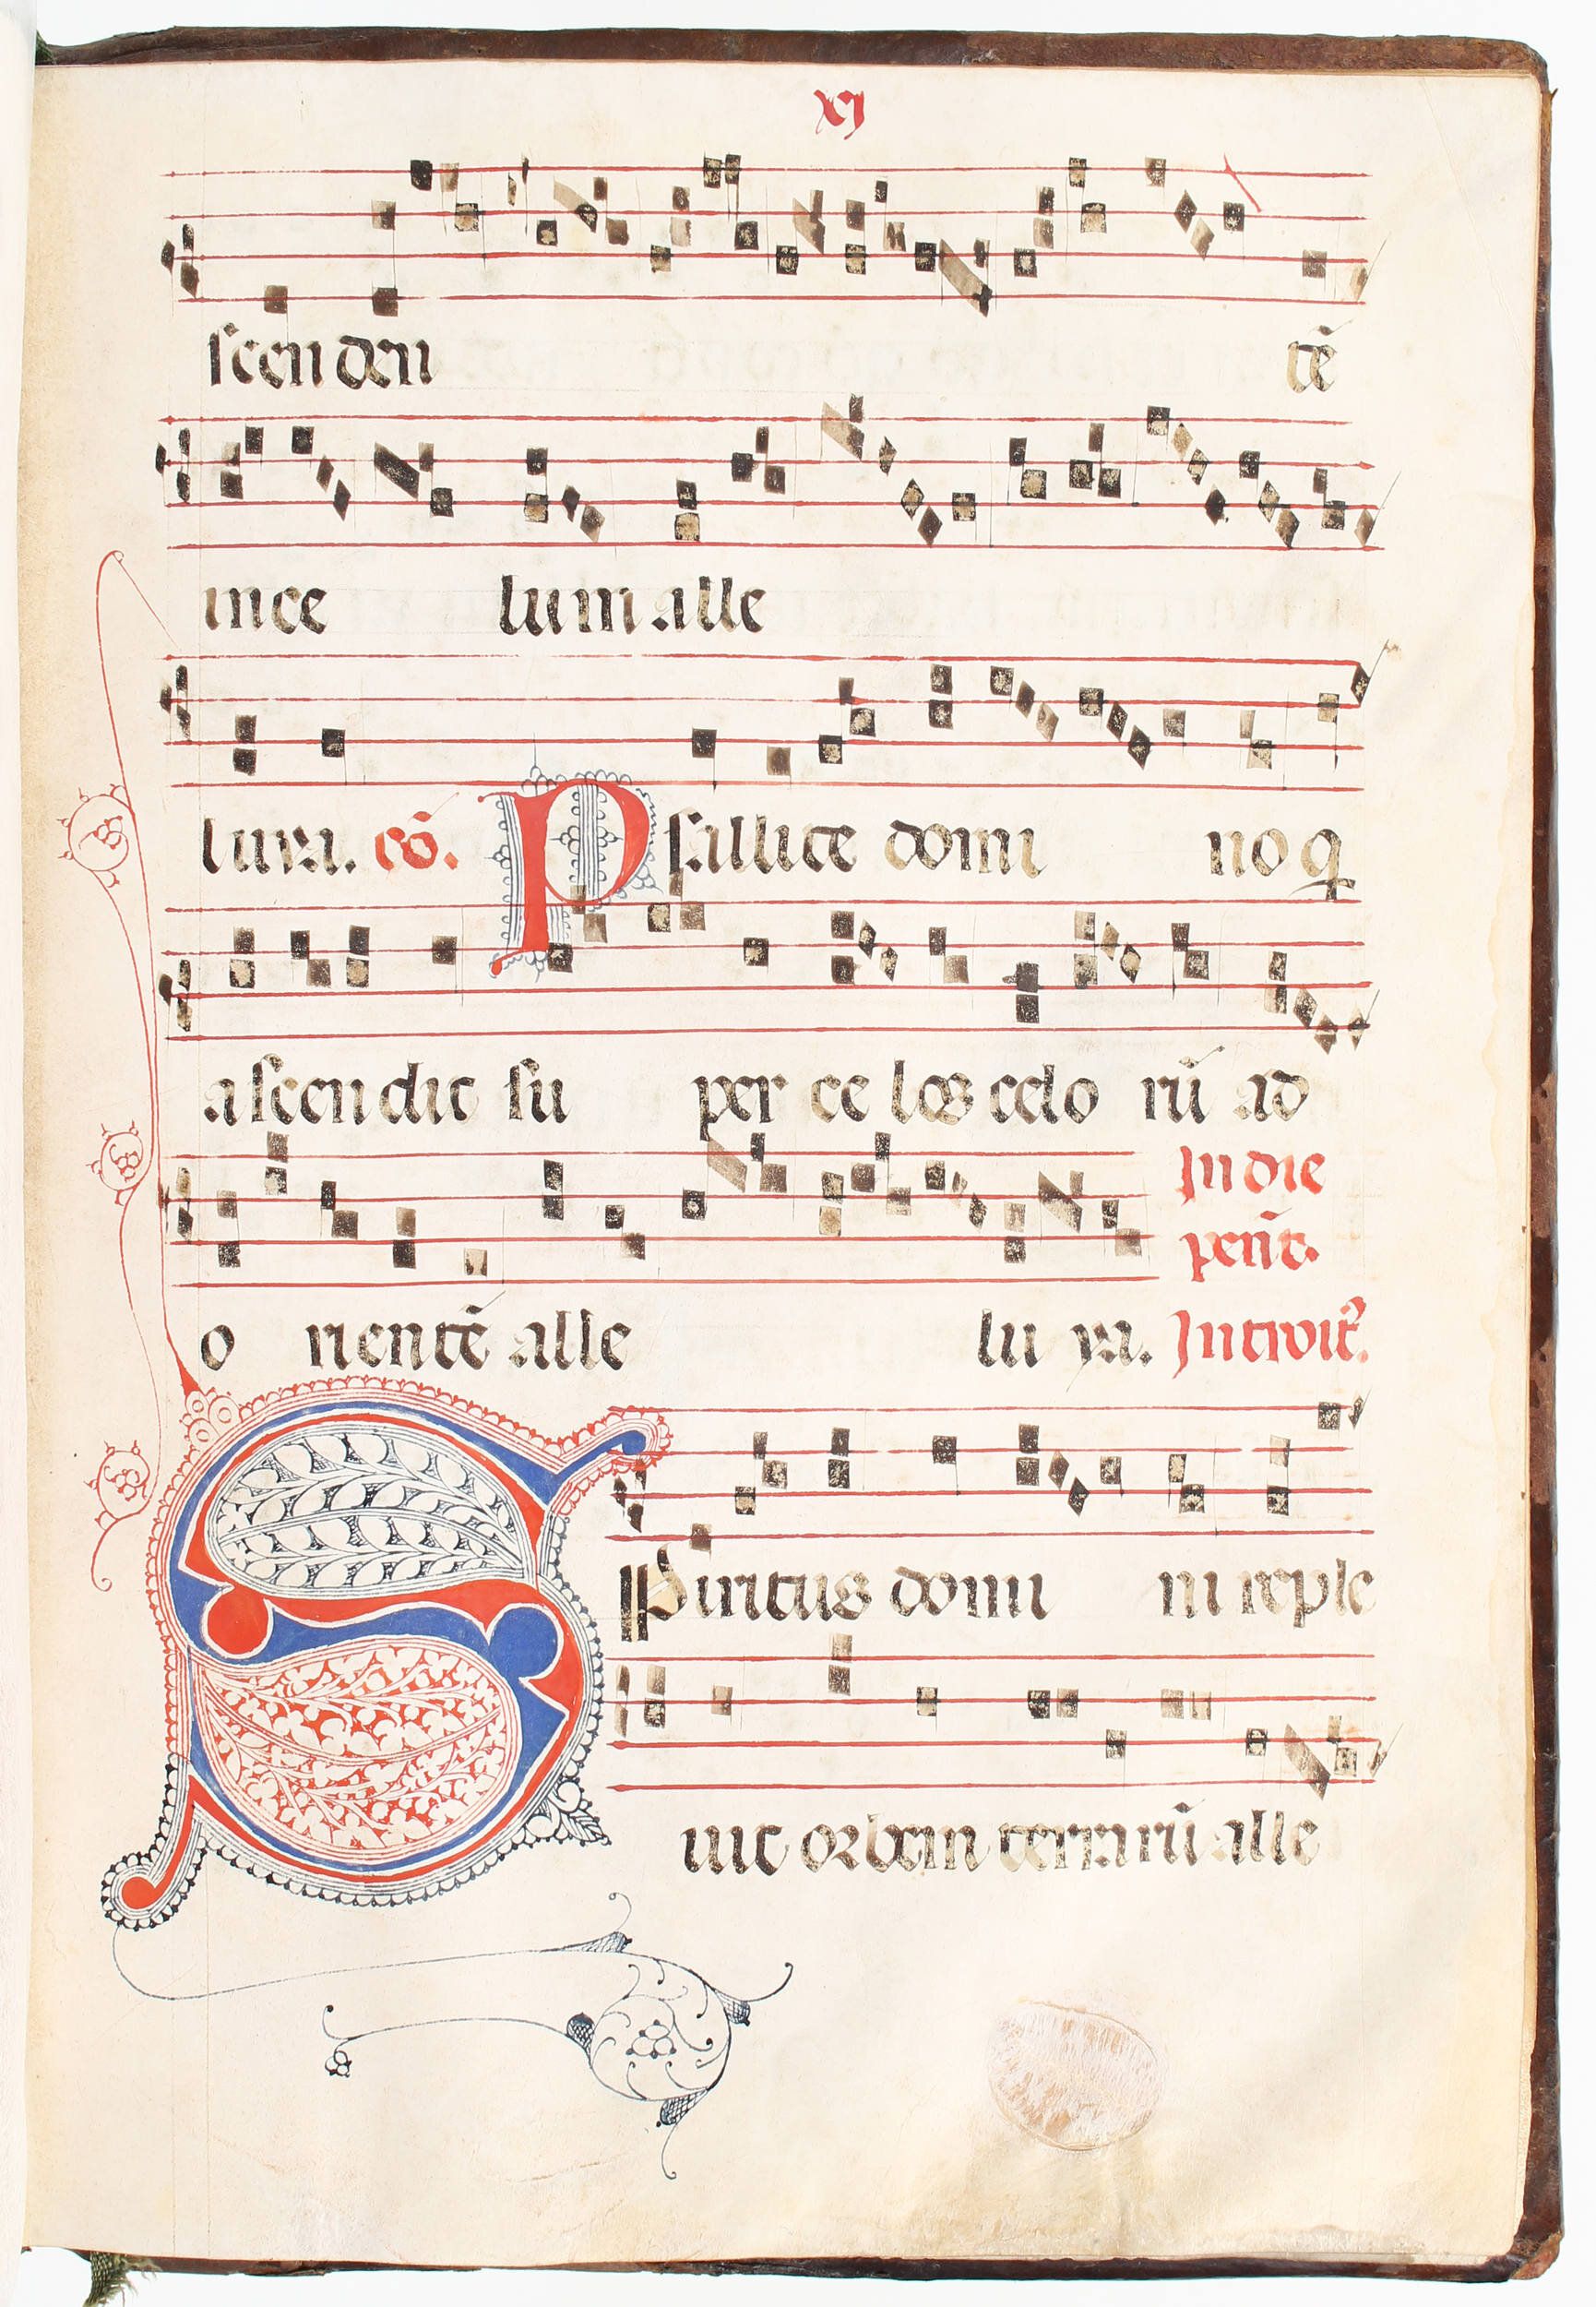 xj
scen den tē
in ce lum alle
luya. cō. Psallite domi no q
ascendit su per ce los celo rū ad
In die
pent̄.
o rientē alle lu ya. Introit᷒.
SPiritus domi ni reple
uit orbem terrarū alle